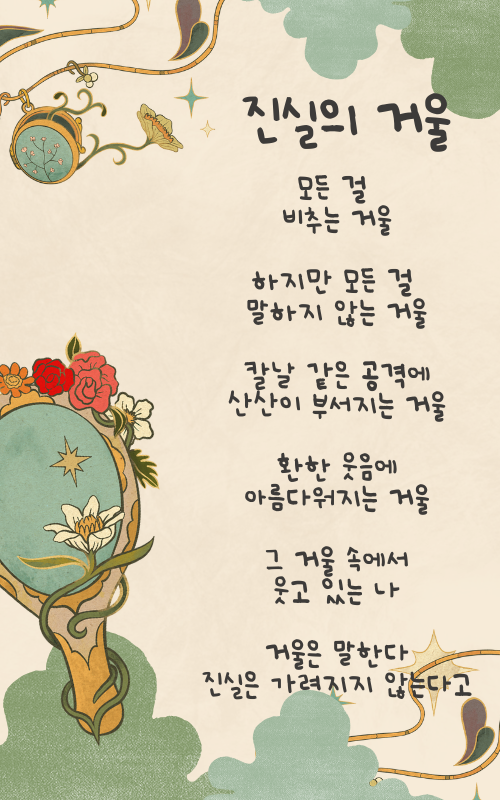 진실의 거울
모든 걸
비추는 거울
하지만 모든 걸
말하지 않는 거울
칼날 같은 공격에
산산이 부서지는 거울
환한 웃음에
아름다워지는 거울
그 거울 속에서
웃고 있는 나
거울은 말한다
진실은 가려지지 않는다고